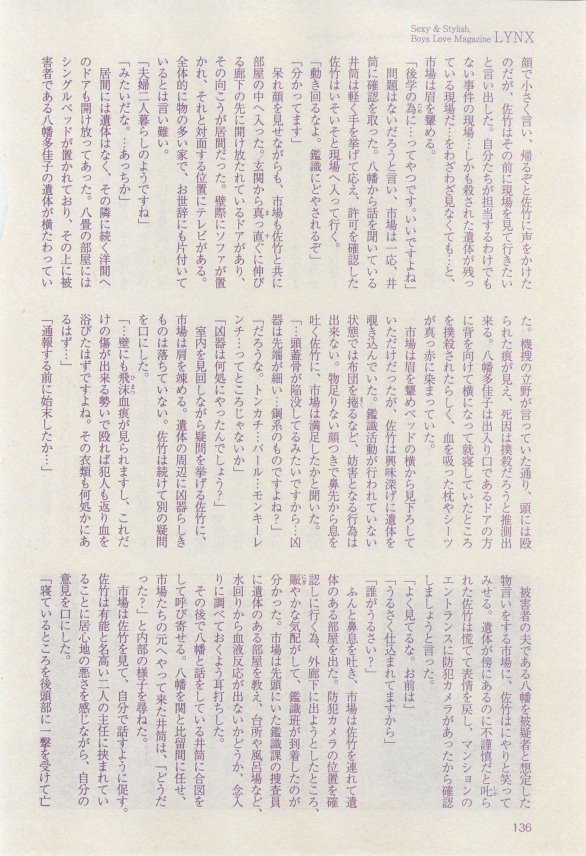 Sexy & Stylish
Boys Love Magazine LYNX
顔で小さく言い、帰るぞと佐竹に声をかけた
のだが、佐竹はその前に現場を見て行きたい
と言い出した。自分たちが担当するわけでも
ない事件の現場…しかも殺された遺体が残っ
ている現場だ…をわざわざ見なくても…と、
市場は眉を顰める。
「後学の為に…ってやつです。いいですよね」
問題はないだろうと言い、市場は一応、井
筒に確認を取った。八幡から話を聞いている
井筒は軽く手を挙げて応え、許可を確認した
佐竹はいそいそと現場へ入って行く。
「動き回るなよ。鑑識にどやされるぞ」
「分かってます」
呆れ顔を見せながらも、市場も佐竹と共に
部屋の中へ入った。玄関から真っ直ぐに伸び
る廊下の先に開け放たれているドアがあり、
その向こうが居間だった。壁際にソファが置
かれ、それと対面する位置にテレビがある。
全体的に物の多い家で、お世辞にも片付いて
いるとは言い難い。
「夫婦二人暮らしのようですね」
「みたいだな。…あっちか」
居間には遺体はなく、その隣に続く洋間へ
のドアも開け放ってあった。八畳の部屋には
シングルベッドが置かれており、その上に被
害者である八幡多佳子の遺体が横たわってい
た。機捜の立野が言っていた通り、頭には殴
られた痕が見え、死因は撲殺だろうと推測出
来る。八幡多佳子は出入り口であるドアの方
に背を向けて横になって就寝していたところ
を撲殺されたらしく、血を吸った枕やシーツ
が真っ赤に染まっていた。
市場は眉を顰めベッドの横から見下ろして
いただけだったが、佐竹は興味深げに遺体を
覗き込んでいた。鑑識活動が行われていない
状態では布団を捲るなど、妨害となる行為は
出来ない。物足りない顔つきで鼻先から息を
吐く佐竹に、市場は満足したかと聞いた。
「…頭蓋骨が陥没してるみたいですから…凶
器は先端が細い…鋼系のものですよね？」
「だろうな。トンカチ…バール…モンキーレ
ンチ…ってところじゃないか」
「凶器は何処にやったんでしょう？」
室内を見回しながら疑問を挙げる佐竹に、
市場は肩を竦める。遺体の周辺に凶器らしき
ものは落ちていない。佐竹は続けて別の疑問
を口にした。
「…壁にも飛沫血痕が見られますし、これだ
けの傷が出来る勢いで殴れば犯人も返り血を
浴びたはずですよね。その衣類も何処かにあ
るはず…」
「通報する前に始末したか…」
被害者の夫である八幡を被疑者と想定した
物言いをする市場に、佐竹はにやりと笑って
みせる。遺体が傍にあるのに不謹慎だと叱ら
れた佐竹は慌てて表情を戻し、マンションの
エントランスに防犯カメラがあったから確認
しましょうと言った。
「よく見てるな。お前は」
「うるさく仕込まれてますから」
「誰がうるさい？」
ふんと鼻息を吐き、市場は佐竹を連れて遺
体のある部屋を出た。防犯カメラの位置を確
認しに行く為、外廊下に出ようとしたところ、
賑やかな気配がして、鑑識班が到着したのが
分かった。市場は先頭にいた鑑識課の捜査員
に遺体のある部屋を教え、台所や風呂場など、
水回りから血液反応が出ないかどうか、念入
りに調べておくよう耳打ちした。
その後で八幡と話をしている井筒に合図を
して呼び寄せる。八幡を関と比留間に任せ、
市場たちの元へやって来た井筒は、「どうだ
った？」と内部の様子を尋ねた。
市場は佐竹を見て、自分で話すように促す。
佐竹は有能と名高い二人の主任に挟まれてい
ることに居心地の悪さを感じながら、自分の
意見を口にした。
「寝ているところを後頭部に一撃を受けて亡
136